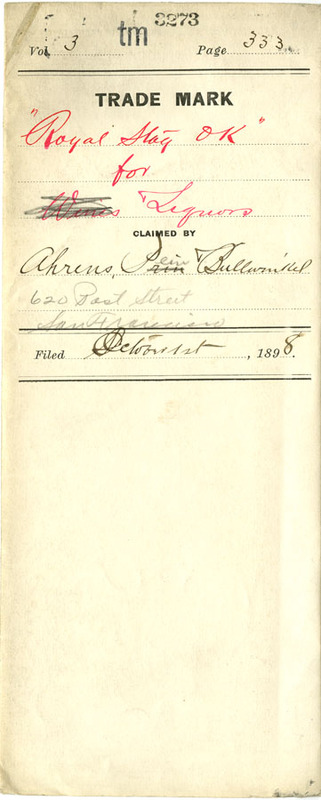 3273
Vol. 3 tm Page 333
TRADE MARK
"Royal Stag OK"
for
Wines & Liquors
CLAIMED BY
Ahrens, Pein & Bullwinkel
620 Post Street
San Francisco
Filed October 1st, 1898.